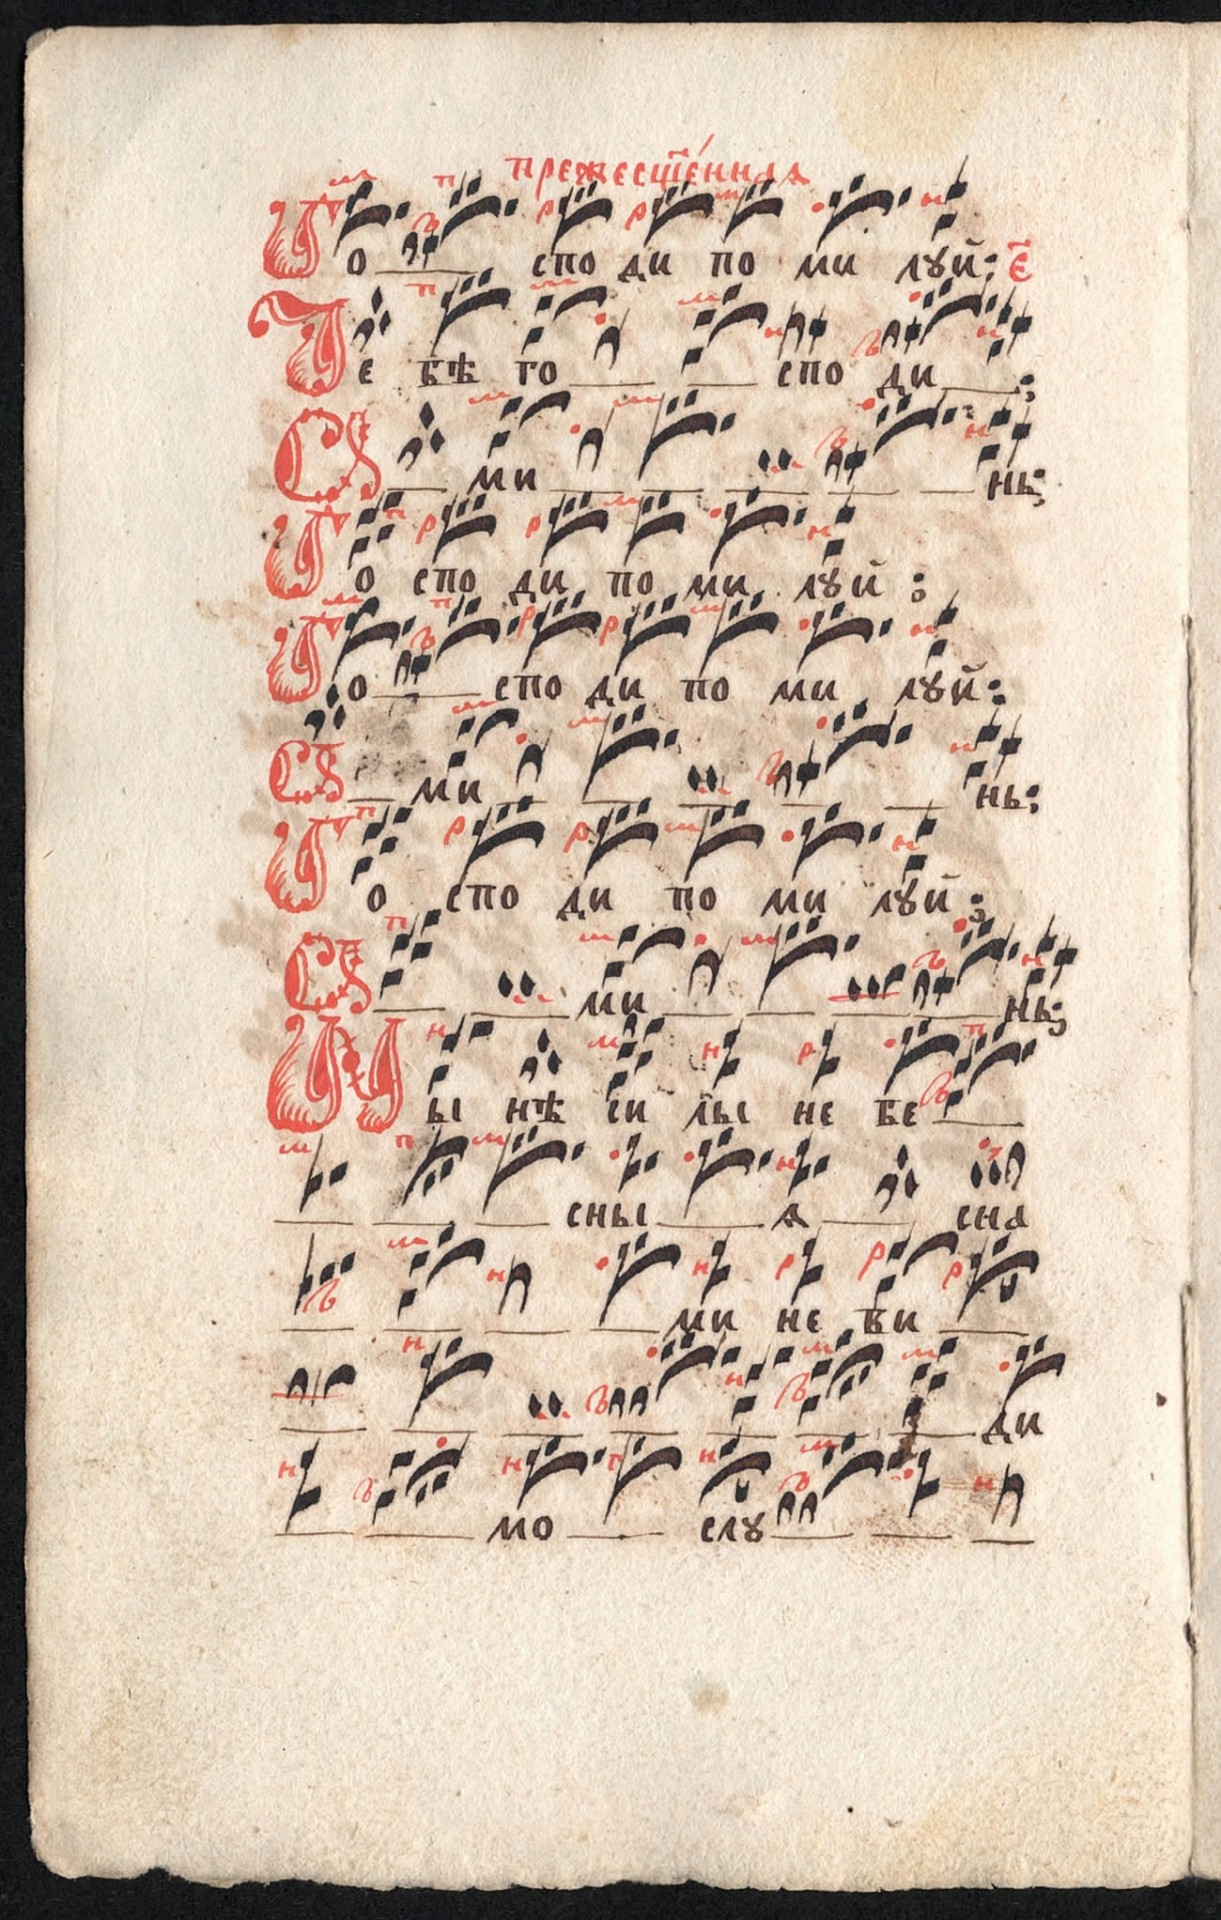 прежесще́нная
Го споди помилꙋй: е҃
Тебѣ го споди:
Аминь:
Господи помилꙋй:
Го споди помилꙋй:
А минь:
Господи помилꙋй:
А ми нь:
Ны нѣ си лы не бе
сны ѧ сна
ми не ви
ди
мо слꙋ